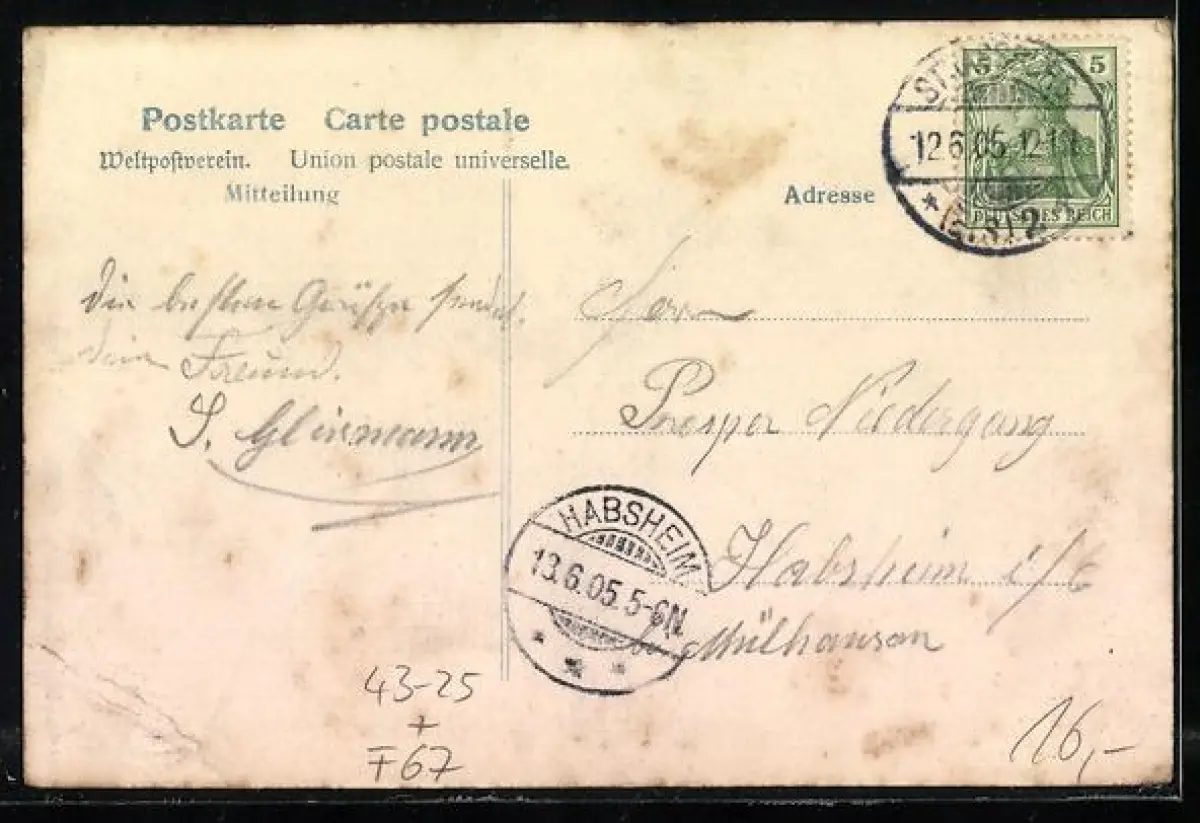 Postkarte Carte postale
Weltpostverein. Union postale universelle.
Mitteilung
Adresse
5 5
DEUTSCHES REICH
12.6.05 12-1
2
Die besten Grüße sendet
dein Freund.
Herrn
Prosper Niedergang
Habsheim i/E
Mülhausen
HABSHEIM
13.6.05. 5-6N.
43-25
+
F67
16,-